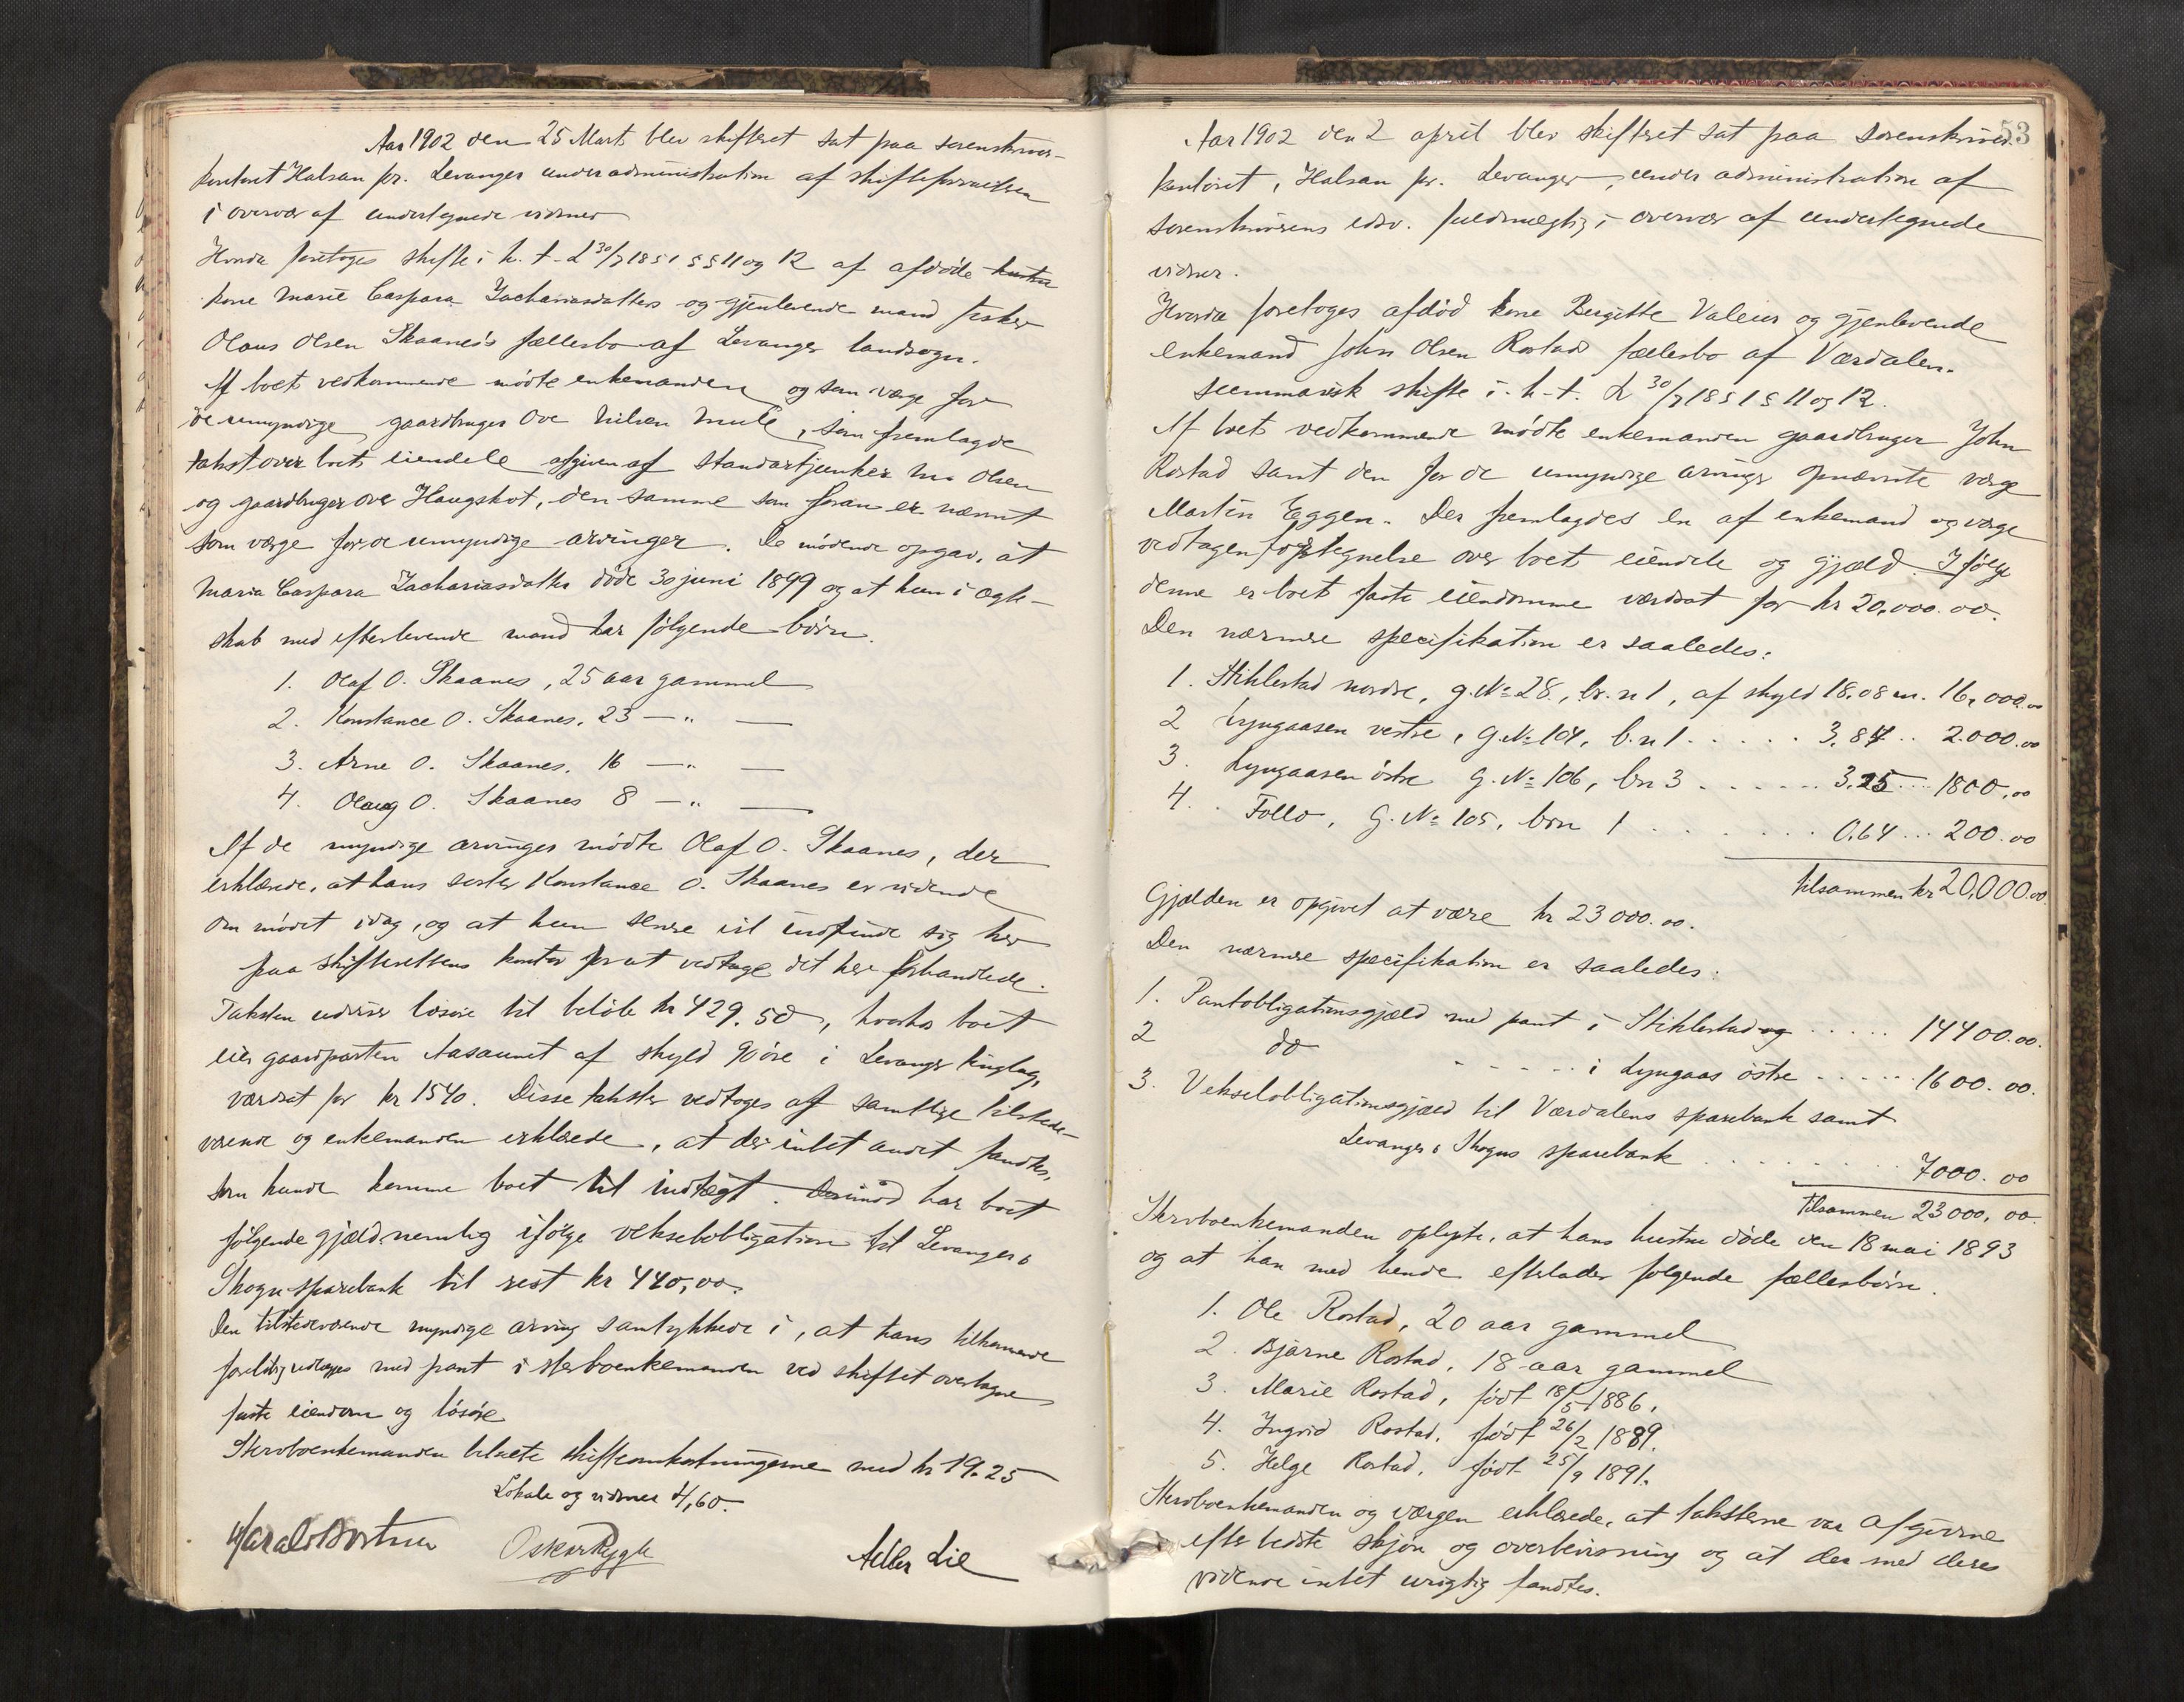 Aar 1902 den 25 Marts blev skifteret sat paa sorenskriver-
kontoret Halsan pr. Levanger under administration af skifteforvalteren
i overvær af undertegnede vidner
Hvorda foretoges skifte i h. t. L 30/7 1851 §§ 11 og 12 af afdøde hustru
kone Marie Caspara Zachariasdatters og gjenlevende mand fisker
Olaus Olsen Skaanes's fællesbo af Levanger landsogn.
Af boets vedkommende mødte enkemanden og som værge for
de umyndige gaardbruger Ove Nilsen Mule, som fremlagde
takst over boets eiendele afgiven af standartjunker M. Olsen
og gaardbruger Ove Haugskot, den samme som foran er nævnt
som værge for de umyndige arvinger. De mødende opgav, at
Maria Caspara Zachariasdatter døde 30 juni 1899 og at hun i ægte-
skab med efterlevende mand har følgende børn.
1. Olaf O. Skaanes, 25 aar gammel
2. Konstance O. Skaanes, 23 — " —
3. Arne O. Skaanes, 16 — " —
4. Olaug O. Skaanes 8 — " —
Af de myndige arvinger mødte Olaf O. Skaanes, der
erklærede, at hans søster Konstance O. Skaanes er vidende
om mødet idag, og at hun senere vil indfinde sig her
paa skifterettens kontor for at vedtage det her forhandlede.
Taksten udviser løsøre til beløb kr 429.50, hvorhos boet
eier gaardparten Aasaunet af skyld 90 øre i Levanger thinglag,
værdsat for kr 1540. Disse takster vedtoges af samtlige tilstede-
værende og enkemanden erklærede, at der intet andet fandtes,
som kunde komme boet til indtægt. Derimod har boet
følgende gjæld nemlig ifølge vekselobligation til Levanger &
Skogn sparebank til rest kr 440,00.
Den tilstedeværende myndige arving samtykkede i, at hans tilkommende
forelodig udlægges med pant i sterboenkemanden ved skiftet overtagne
faste eiendom og løsøre
Sterboenkemanden tilsvarte skifteomkostningerne med kr 19.25
Lokale og vidner 4,60.
Harald Bostrøm Oskar Rygh Adler Lie
53
Aar 1902 den 2 april blev skifteret sat paa sorenskriver-
kontoret, Halsan pr. Levanger, under administration af
sorenskriverens edsv. fuldmægtig i overvær af undertegnede
vidner.
Hvorda foretoges afdød kone Bergitte Valeurs og gjenlevende
enkemand John Olsen Rostads fællesbo af Værdalen.
summarisk skifte i. h. t. L 30/7 1851 § 11 og 12.
Af boets vedkommende mødte enkemanden gaardbruger John
Rostad samt den for de umyndige arvinger opnævnte værge
Martin Eggen. Der fremlagdes en af enkemand og værge
vedtagen fortegnelse over boets eiendele og gjæld. Ifølge
denne er boets faste eiendomme værdsat for kr 20,000.00.
Den nærmere specifikation er saaledes:
1. Stiklestad nordre, g. № 28, br. n 1, af skyld 18.08 m. 16,000.00
2 Lyngaasen vestre, g. № 104, b. n 1. . . . . 3,87 . . 2.000.00
3. Lyngaasen østre g. № 106, bn 3 . . . . . . 3,25 . . . 1800,00
4. Follo, g. № 105, brn 1 . . . . . . . 0,64 . . . 200.00
tilsammen kr 20,000.00.
Gjælden er opgivet at være kr 23 000.00.
Den nærmere specifikation er saaledes:
1. Pantobligationsgjæld med pant i Stiklestad og . . . . . 14400.00.
2 do - - - - - i Lyngaas østre . . . . . 1600.00.
3. Vekselobligationsgjæld til Værdalens sparebank samt
Levanger & Skogns sparebank . . . . . . . . 7000.00
tilsammen 23 000,00.
Sterboenkemanden oplyste, at hans hustru døde den 18 mai 1893
og at han med hende efterlader følgende fællesbørn.
1. Ole Rostad, 20 aar gammel
2. Bjarne Rostad, 18 aar gammel
3. Marie Rostad, født 18/5 1886,
4. Ingrid Rostad, født 26/2 1889.
5. Helge Rostad, født 25/9 1891.
Sterboenkemanden og værgen erklærede, at taksterne var afgivne
efter bedste skjøn og overbevisning og at der med deres
vidende intet urigtig fandtes.